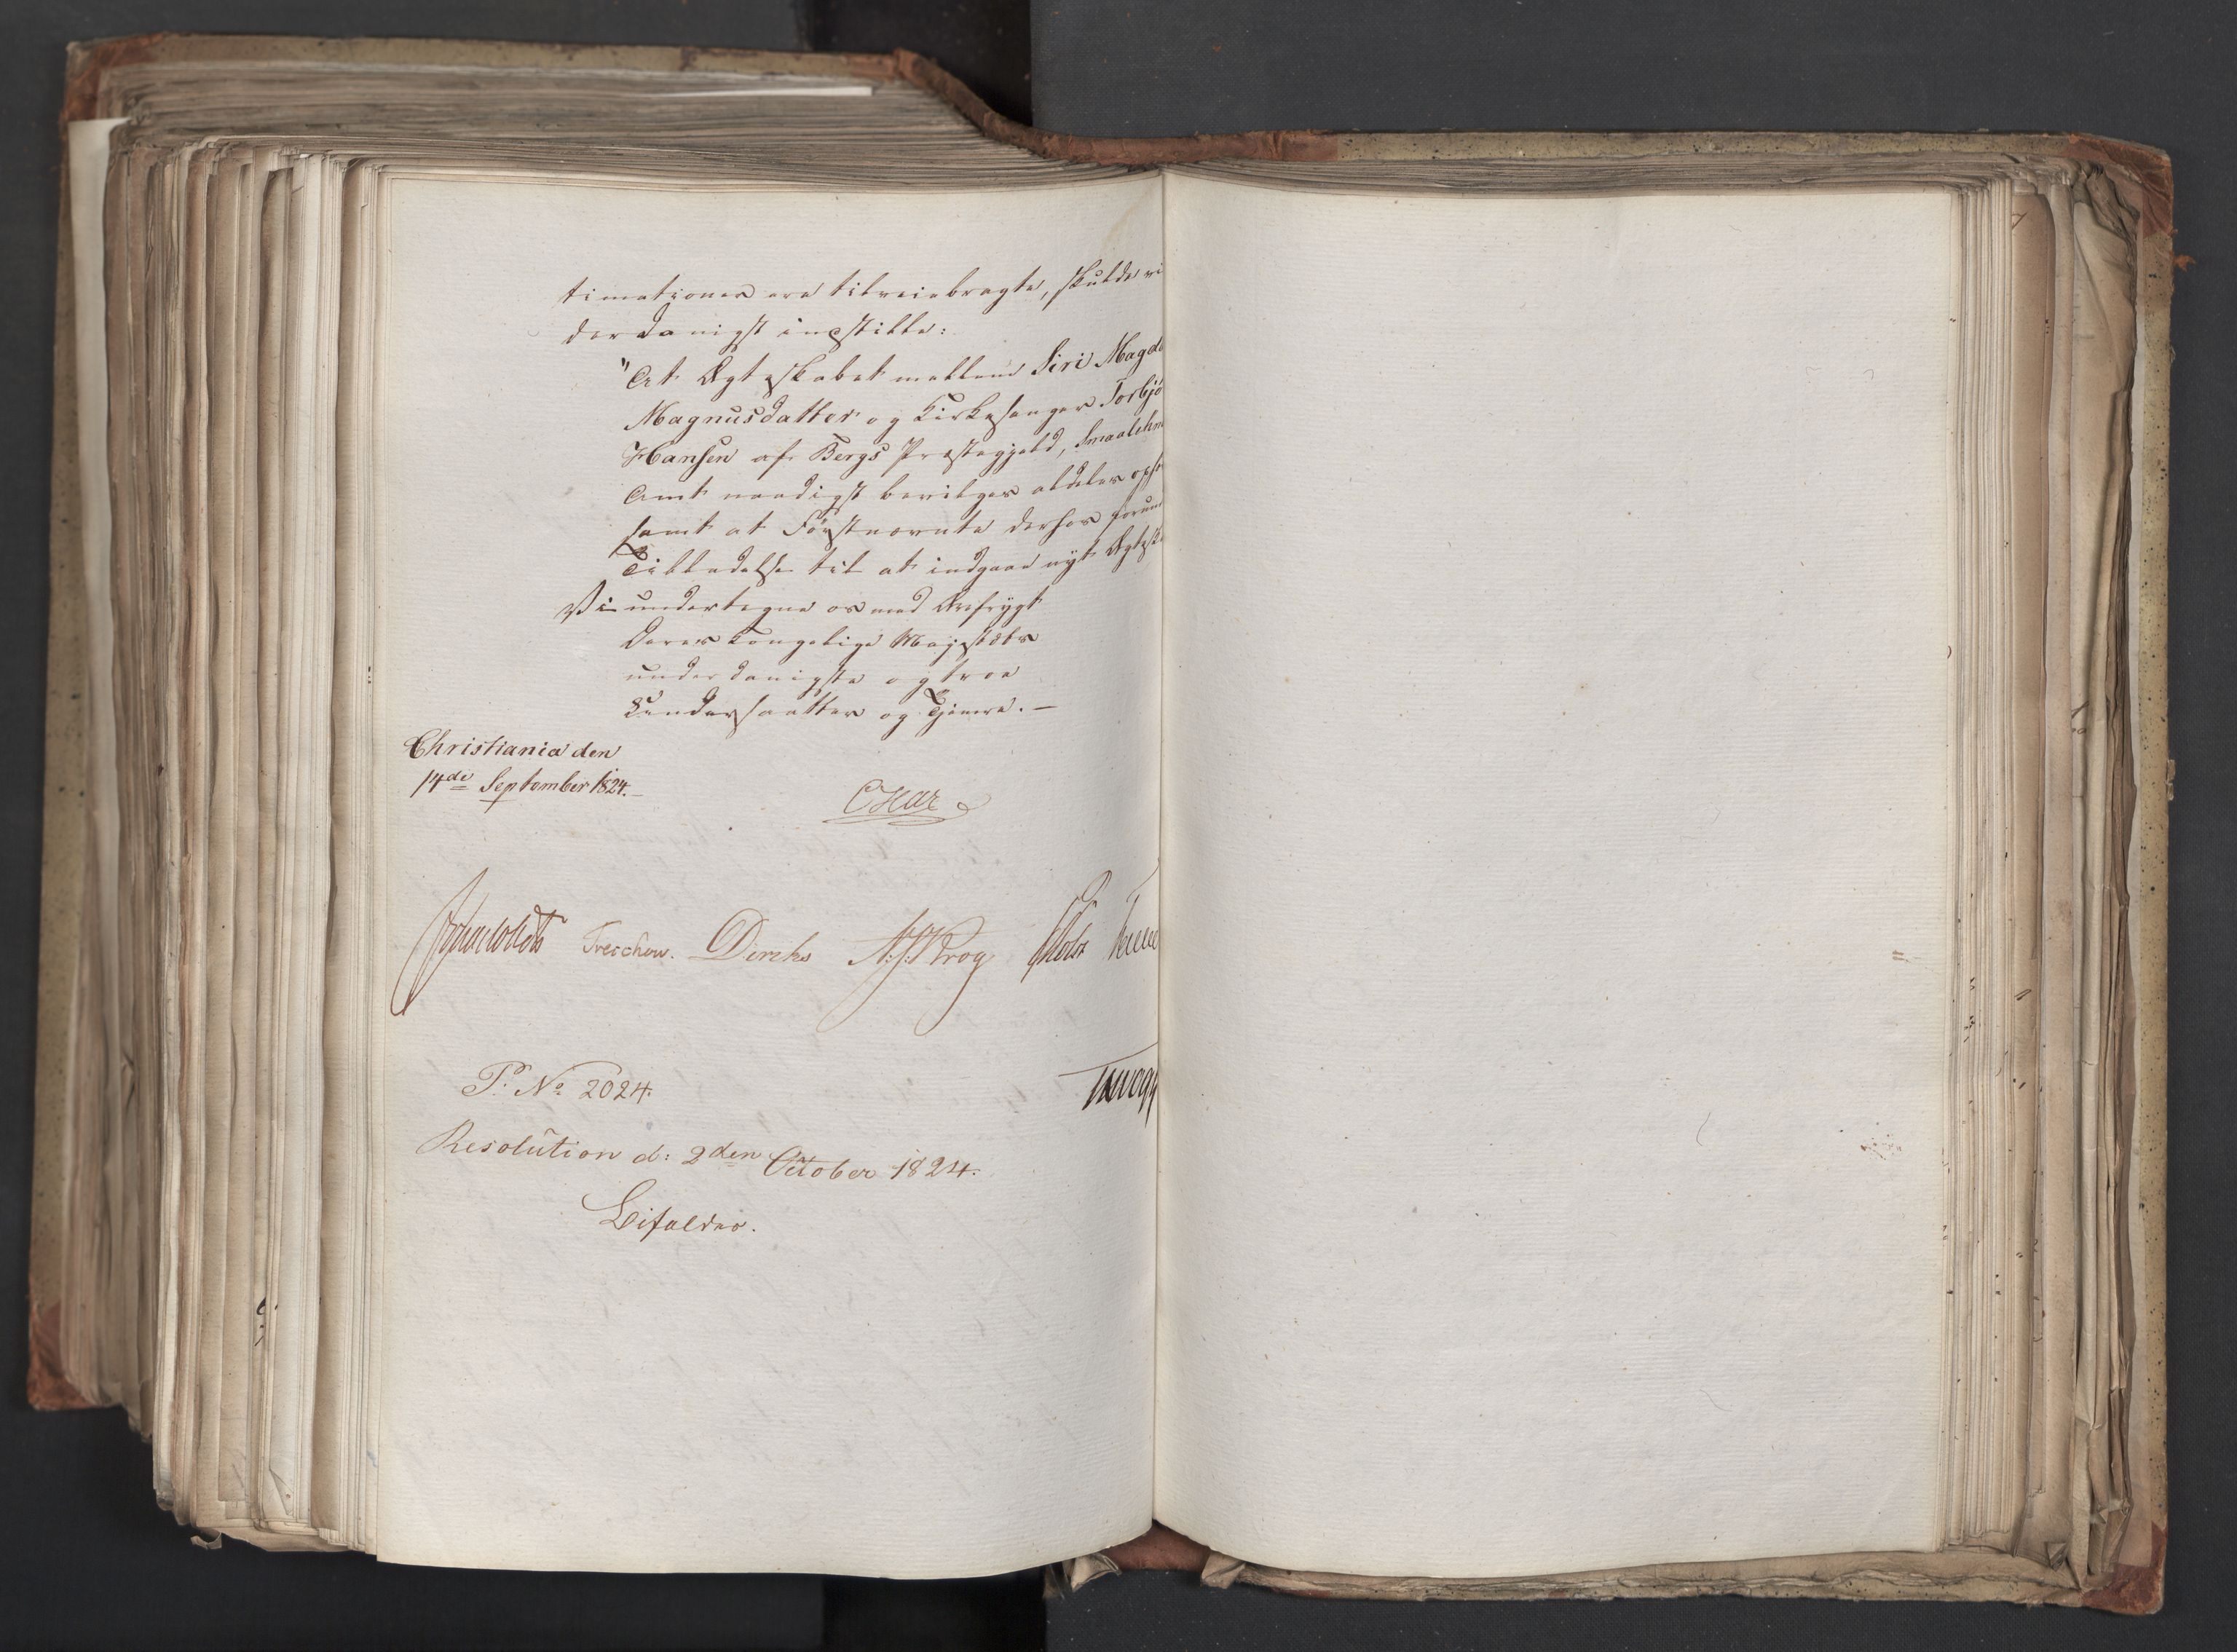 timationer ere tilveiebragte, skulde vi
derdanigst indstille:
"At Ægteskabet mellem Siri Magda
Magnusdatter og Kirkesanger Torbjö
Hansen af Bergs Præstegjeld, Smaalehne
Amt naadigst bevilges aldeles ophæ
samt at Förstnævnte derhos forund
Tilladelse til at indgaae nyt Ægtesk
Vi undertegne os med Ærefrygt
Deres Kongelige Majestæts
underdanigste og troe
Undersaatter og Tjenere. —
Christiania den
14de September 1824.
Oscar
Treschow. Diriks A:J:Krog Holst
P. No 2024.
Resolution d: 2den October 1824.
Bifaldes.